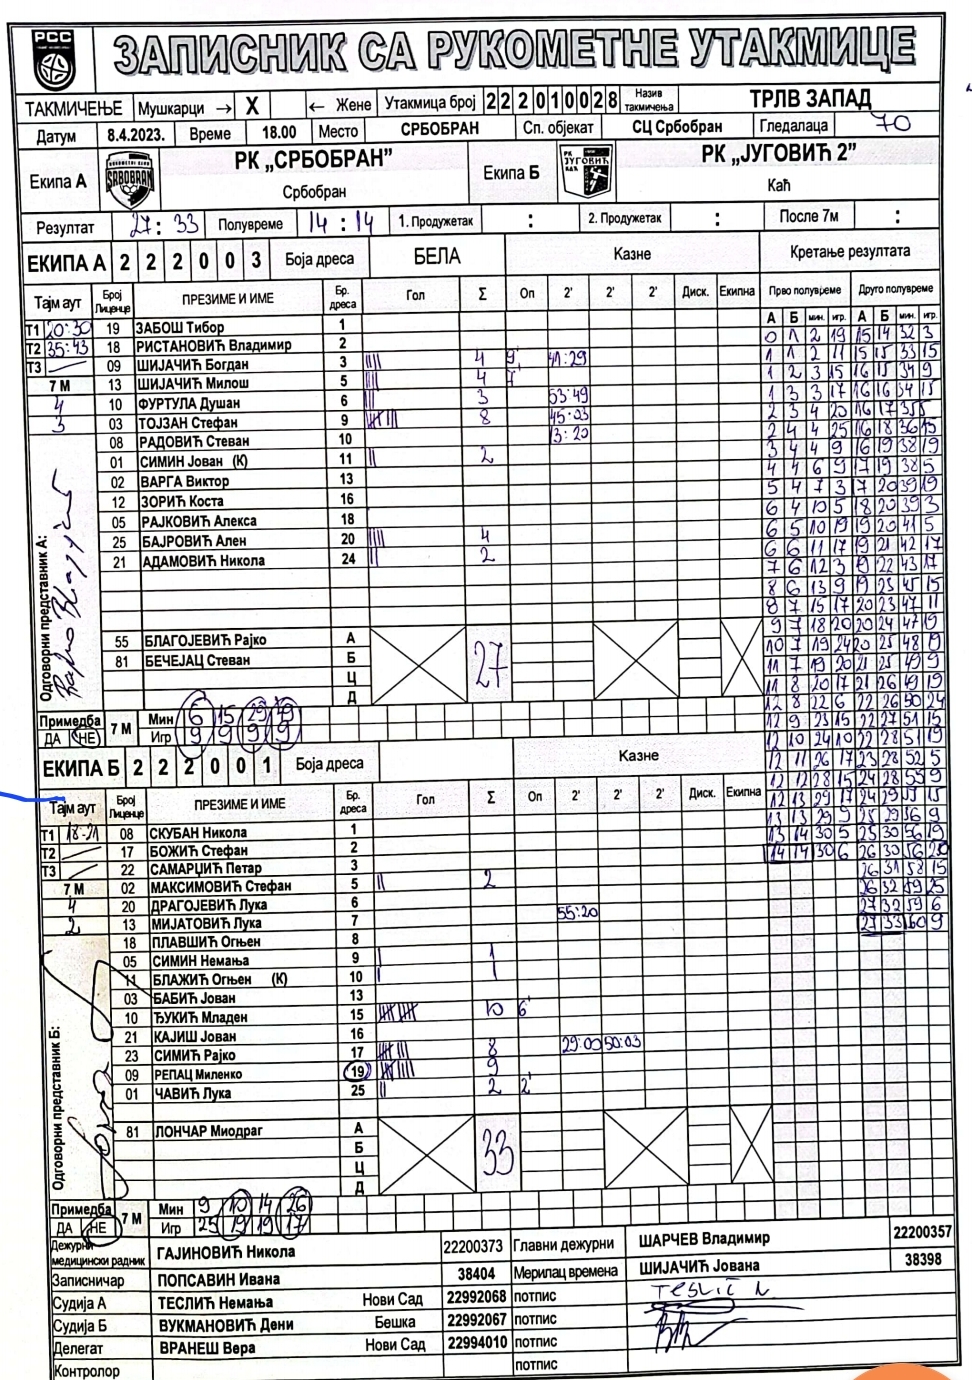 РСС
ЗАПИСНИК СА РУКОМЕТНЕ УТАКМИЦЕ
ТАКМИЧЕЊЕ Мушкарци → X ← Жене Утакмица број 2 2 2 0 1 0 0 2 8 Назив такмичења ТРЛВ ЗАПАД
Датум 8.4.2023. Време 18.00 Место СРБОБРАН Сп. објекат СЦ Србобран Гледалаца 70
Екипа А SRBOBRAN РК „СРБОБРАН” Србобран Екипа Б РК ЈУГОВИЋ КАЋ РК „ЈУГОВИЋ 2” Каћ
Резултат 27: 33 Полувреме 14 : 14 1. Продужетак : 2. Продужетак : После 7м :
ЕКИПА А 2 2 2 0 0 3 Боја дреса БЕЛА Казне Кретање резултата
Тајм аут Број Лиценце ПРЕЗИМЕ И ИМЕ Бр. дреса Гол Σ Оп 2' 2' 2' Диск. Екипна Прво полувреме Друго полувреме
А Б мин. игр. А Б мин. игр.
Т1 20:30 19 ЗАБОШ Тибор 1
Т2 35:43 18 РИСТАНОВИЋ Владимир 2
Т3 09 ШИЈАЧИЋ Богдан 3 |||| 4 9' 41:29
7 М 13 ШИЈАЧИЋ Милош 5 |||| 4
4 10 ФУРТУЛА Душан 6 ||| 3 53:49
3 03 ТОЈЗАН Стефан 9 8 45:03
08 РАДОВИЋ Стеван 10 13:20
01 СИМИН Јован (К) 11 || 2
02 ВАРГА Виктор 13
12 ЗОРИЋ Коста 16
05 РАЈКОВИЋ Алекса 18
25 БАЈРОВИЋ Ален 20 |||| 4
21 АДАМОВИЋ Никола 24 || 2
Одговорни представник А:
55 БЛАГОЈЕВИЋ Рајко А 27
81 БЕЧЕЈАЦ Стеван Б
Ц
Д
Примедба ДА НЕ 7 М Мин 6 15 29 49
Игр 9 9 9 9
0 1 2 19 15 14 32 3
1 1 2 11 15 15 33 15
1 2 3 15 16 15 34 9
1 3 3 17 16 16 34 15
2 3 4 20 16 17 35
2 4 4 25 16 18 36 15
3 4 4 9 16 19 38 19
4 4 6 9 17 19 38 5
5 4 7 3 17 20 39 19
6 4 10 5 18 20 39 3
6 5 10 19 19 20 41 5
6 6 11 17 19 21 42 17
7 6 12 3 19 22 43 17
8 6 13 9 19 23 45 15
8 7 15 17 20 23 47 11
9 7 18 20 20 24 47 19
10 7 19 24 20 25 48 19
11 7 19 20 21 25 49 9
11 8 20 17 21 26 49 19
12 8 22 6 22 26 50 24
12 9 23 15 22 27 51 15
12 10 24 10 22 28 51 19
12 11 26 17 23 28 52 5
12 12 28 15 24 28 55 9
12 13 29 17 24 29 55 15
13 13 29 9 25 29 56 9
13 14 30 5 25 30 56 19
14 14 30 6 26 30 56 20
26 31 58 15
26 32 59 25
27 32 59 6
27 33 60 9
ЕКИПА Б 2 2 2 0 0 1 Боја дреса Казне
Тајм аут Број Лиценце ПРЕЗИМЕ И ИМЕ Бр. дреса Гол Σ Оп 2' 2' 2' Диск. Екипна
Т1 18-21 08 СКУБАН Никола 1
Т2 17 БОЖИЋ Стефан 2
Т3 22 САМАРЏИЋ Петар 3
7 М 02 МАКСИМОВИЋ Стефан 5 || 2
4 20 ДРАГОЈЕВИЋ Лука 6
2 13 МИЈАТОВИЋ Лука 7 55:20
18 ПЛАВШИЋ Огњен 8
05 СИМИН Немања 9 | 1
11 БЛАЖИЋ Огњен (К) 10 | 1
03 БАБИЋ Јован 13
10 ЂУКИЋ Младен 15 10 6'
21 КАЈИШ Јован 16
23 СИМИЋ Рајко 17 8 29:00 50:03
09 РЕПАЦ Миленко 19 9
01 ЧАВИЋ Лука 25 || 2 2'
Одговорни представник Б:
81 ЛОНЧАР Миодраг А 33
Б
Ц
Д
Примедба ДА НЕ 7 М Мин 9 10 14 26
Игр 25 19 19 17
Дежурни медицински радник ГАЈИНОВИЋ Никола 22200373 Главни дежурни ШАРЧЕВ Владимир 22200357
Записничар ПОПСАВИН Ивана 38404 Мерилац времена ШИЈАЧИЋ Јована 38398
Судија А ТЕСЛИЋ Немања Нови Сад 22992068 потпис Teslić N
Судија Б ВУКМАНОВИЋ Дени Бешка 22992067 потпис
Делегат ВРАНЕШ Вера Нови Сад 22994010 потпис
Контролор потпис